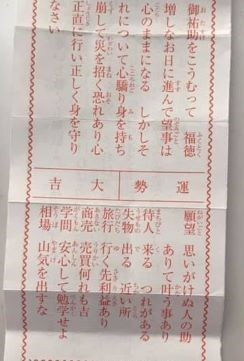 御祐助をこうむって　福徳
増しなお日に進んで望事は
心のままになる　しかしそ
れについて心驕り身を持ち
崩して災を招く恐れあり心
正直に行い正しく身を守り
なさい
運勢　大吉
願望　思いがけぬ人の助
ありて叶う事あり
待人　来る　つれがある
失物　出る　近い所
旅行　行く先利益あり
商売　売買何れも吉
学問　安心して勉学せよ
相場　山気を出すな